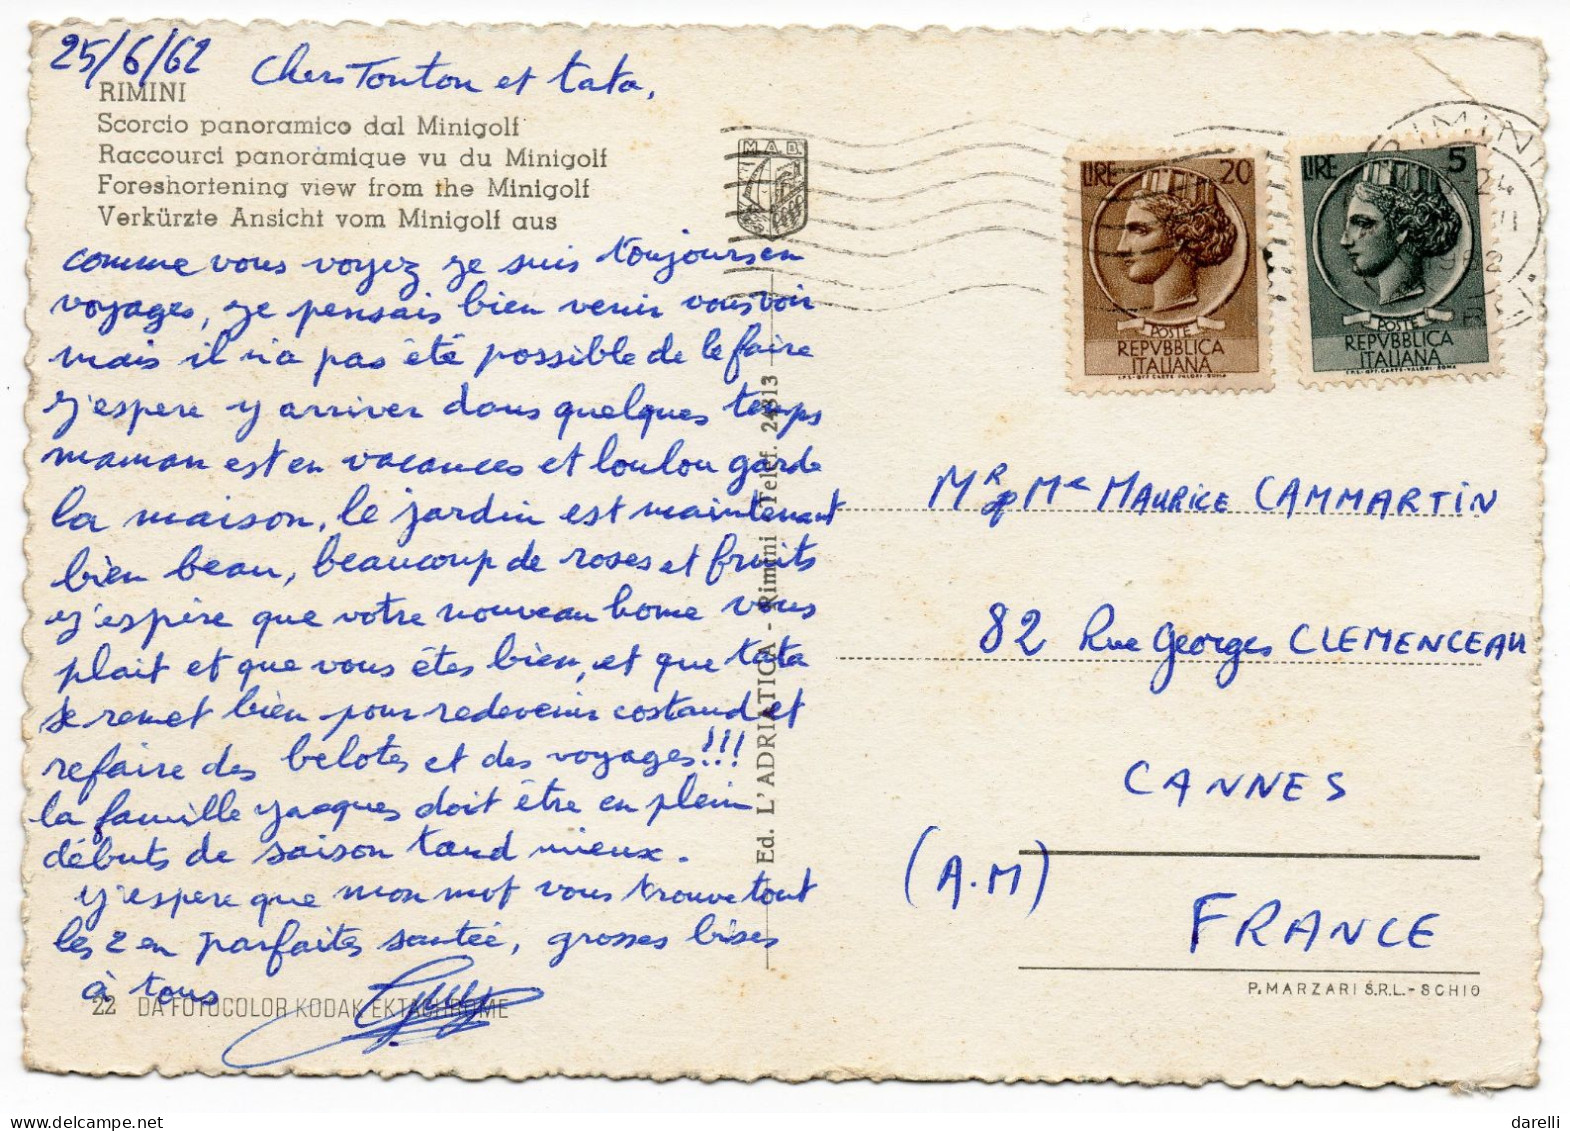 25/6/62 Chers Tonton et tata,
RIMINI
Scorcio panoramico dal Minigolf
Raccourci panoramique vu du Minigolf
Foreshortening view from the Minigolf
Verkürzte Ansicht vom Minigolf aus
comme vous voyez je suis toujours en
voyages, je pensais bien venir vous voir
mais il n'a pas été possible de le faire
j'espere y arriver dans quelques temps
maman est en vacances et loulou garde
la maison, le jardin est maintenant
bien beau, beaucoup de roses et fruits
j'espère que votre nouveau home vous
plait et que vous êtes bien, et que tata
se remet bien pour redevenir costaud et
refaire des belotes et des voyages!!!
la famille Jacques doit être en plein
débuts de saison tand mieux.
j'espere que mon mot vous trouve tout
les 2 en parfaites santée, grosses bises
à tous
22 DA FOTOCOLOR KODAK EKTACHROME
Ed. L'ADRIATICA - Rimini - Telef. 24313
M.A.B.
LIRE 20
POSTE
REPVBBLICA
ITALIANA
I.P.S.-OFF. CARTE VALORI-ROMA
LIRE 5
POSTE
REPVBBLICA
ITALIANA
I.P.S.-OFF. CARTE-VALORI-ROMA
RIMINI
24
Mr et Me MAURICE CAMMARTIN
82 Rue Georges CLEMENCEAU
CANNES
(A.M)
FRANCE
P. MARZARI S.R.L. - SCHIO
darelli